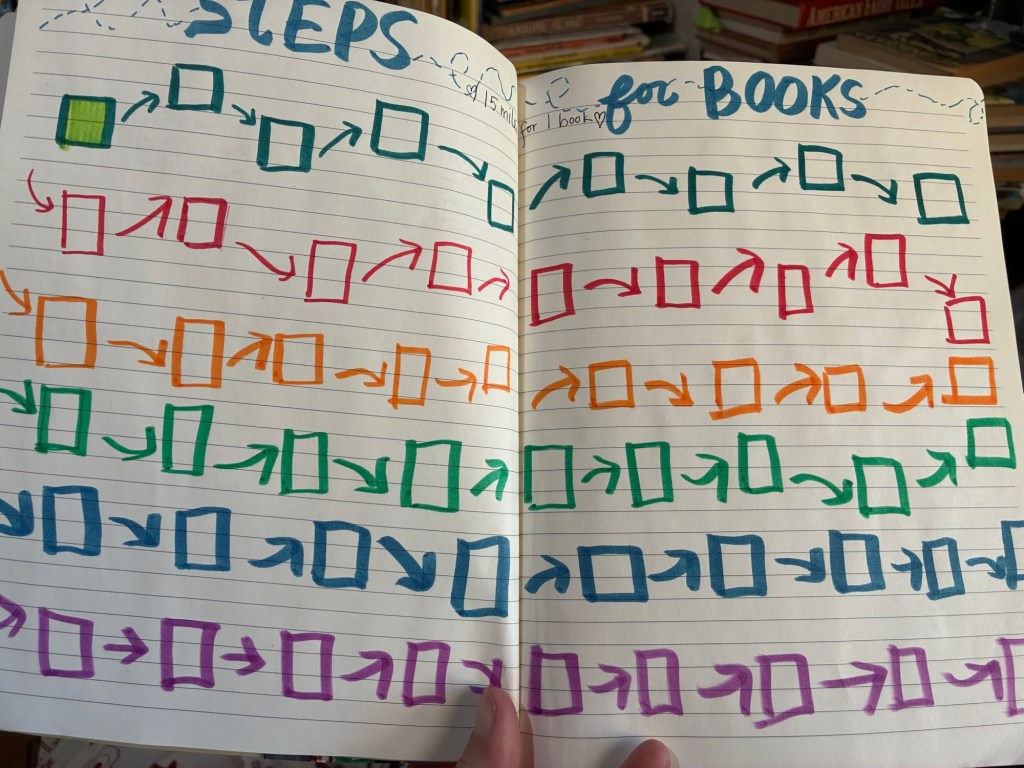 STEPS for BOOKS
♡ 15 mil
for 1 book♡
AMERICAN FAIRY TALES